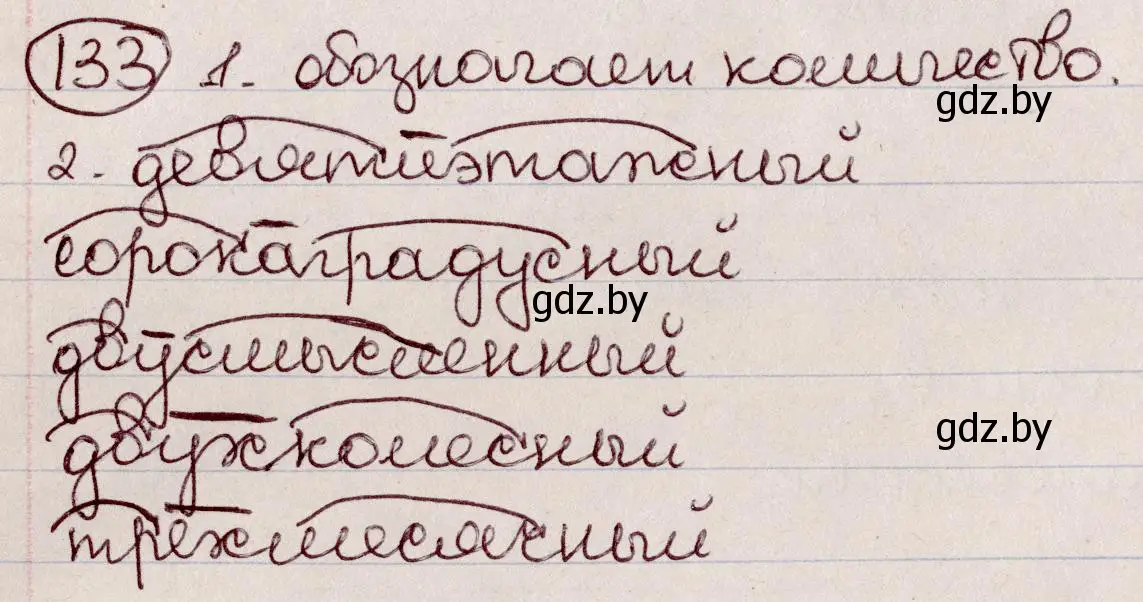 133 1. обозначает количество.
gdz.by
2. девятиэтажный
сорокаградусный
gdz.by
двусмысленный
двухколесный
gdz.by
трехмесячный